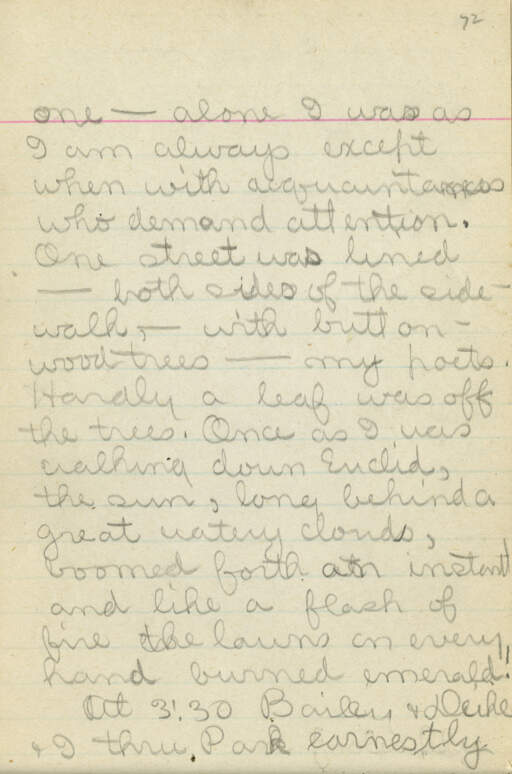 72
one — alone I was as
I am always except
when with acquaintances
who demand attention.
One street was lined
— both sides of the side-
walk, — with button-
wood trees — my poets.
Hardly a leaf was off
the trees. Once as I was
walking down Euclid,
the sun, long behind a
great watery clouds,
boomed forth an instant
and like a flash of
fire the lawns on every
hand burned emerald!
At 3:30 Bailey &
& I thru Park earnestly